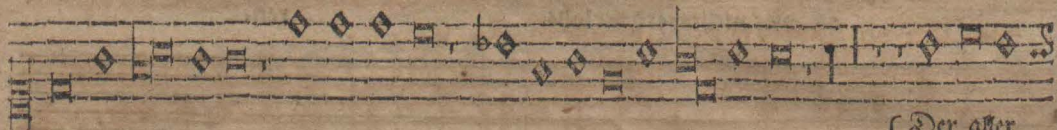 Der aller